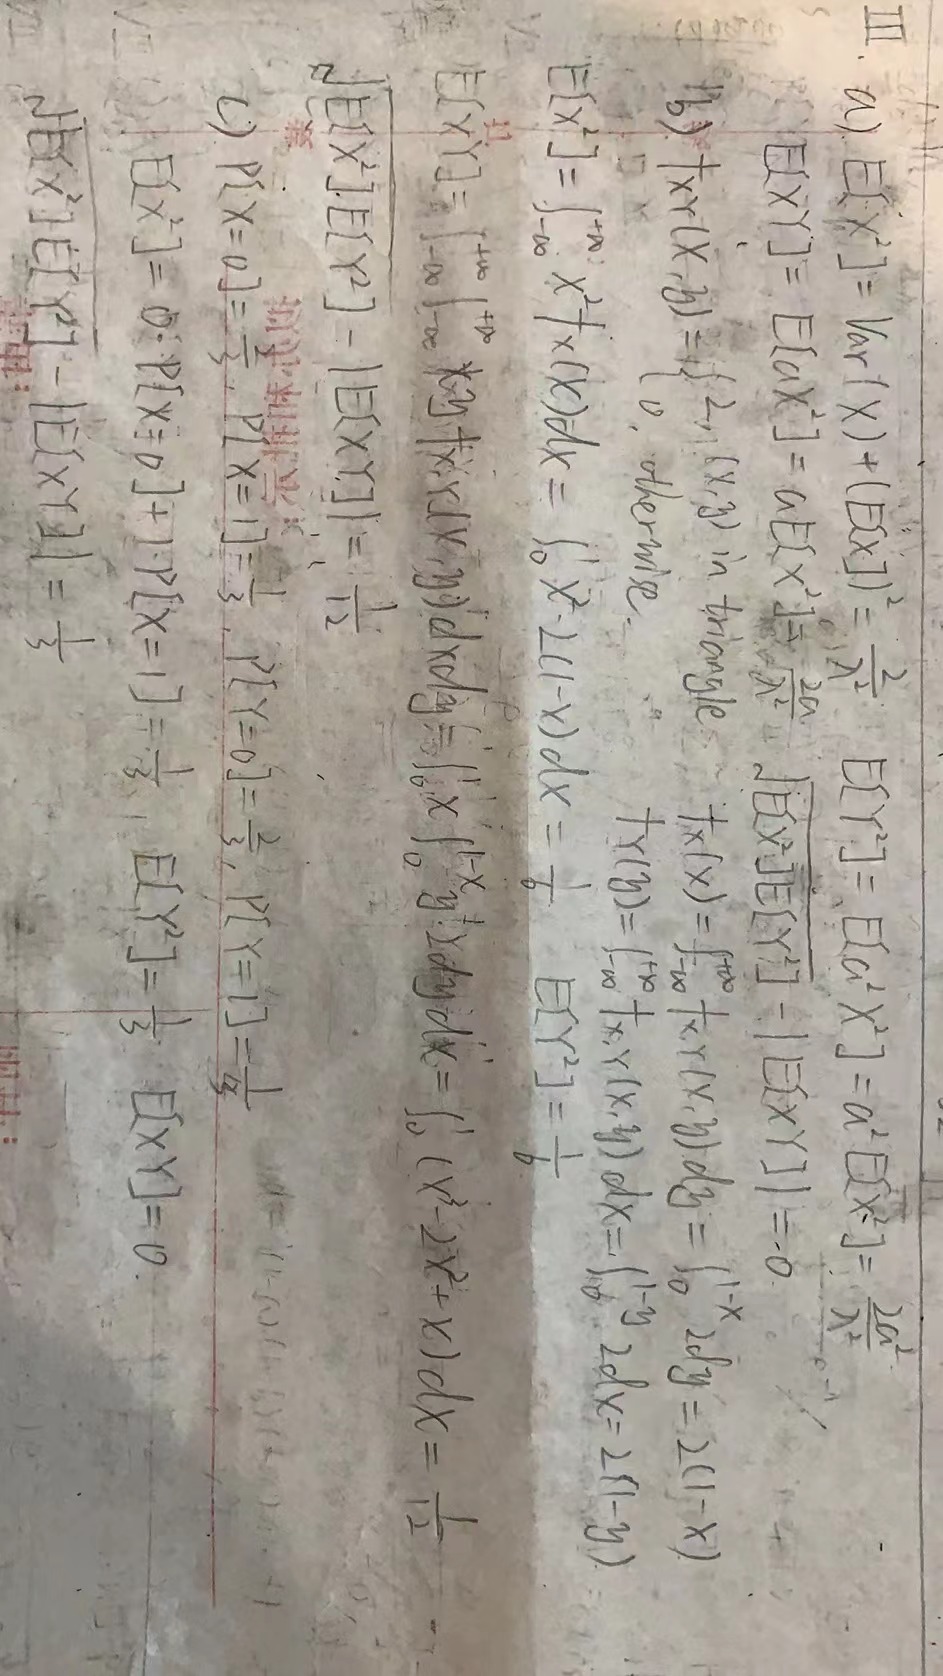 III. a). E[X²] = Var(X) + (E[X])² = 2/λ² E[Y²] = E[a²X²] = a²E[X²] = 2a²/λ²
E[XY] = E[aX²] = aE[X²] = 2a/λ² √(E[X²]E[Y²]) - |E[XY]| = 0.
b). f_{X,Y}(x,y) = { 2, (x,y) in triangle f_X(x) = ∫_{-∞}^{+∞} f_{X,Y}(x,y) dy = ∫_0^{1-x} 2dy = 2(1-x)
0, otherwise. f_Y(y) = ∫_{-∞}^{+∞} f_{X,Y}(x,y) dx = ∫_0^{1-y} 2dx = 2(1-y)
E[X²] = ∫_{-∞}^{+∞} x² f_X(x)dx = ∫_0^1 x²·2(1-x)dx = 1/6 E[Y²] = 1/6
E[XY] = ∫_{-∞}^{+∞} ∫_{-∞}^{+∞} x·y f_{X,Y}(x,y) dxdy = ∫_0^1 x ∫_0^{1-x} y·2dydx = ∫_0^1 (x³-2x²+x)dx = 1/12
√(E[X²]·E[Y²]) - |E[XY]| = 1/12
c) P[X=0] = 2/3, P[X=1] = 1/3, P[Y=0] = 2/3, P[Y=1] = 1/3
E[X²] = 0·P[X=0] + 1·P[X=1] = 1/3, E[Y²] = 1/3 E[XY] = 0.
√(E[X²]E[Y²]) - |E[XY]| = 1/3